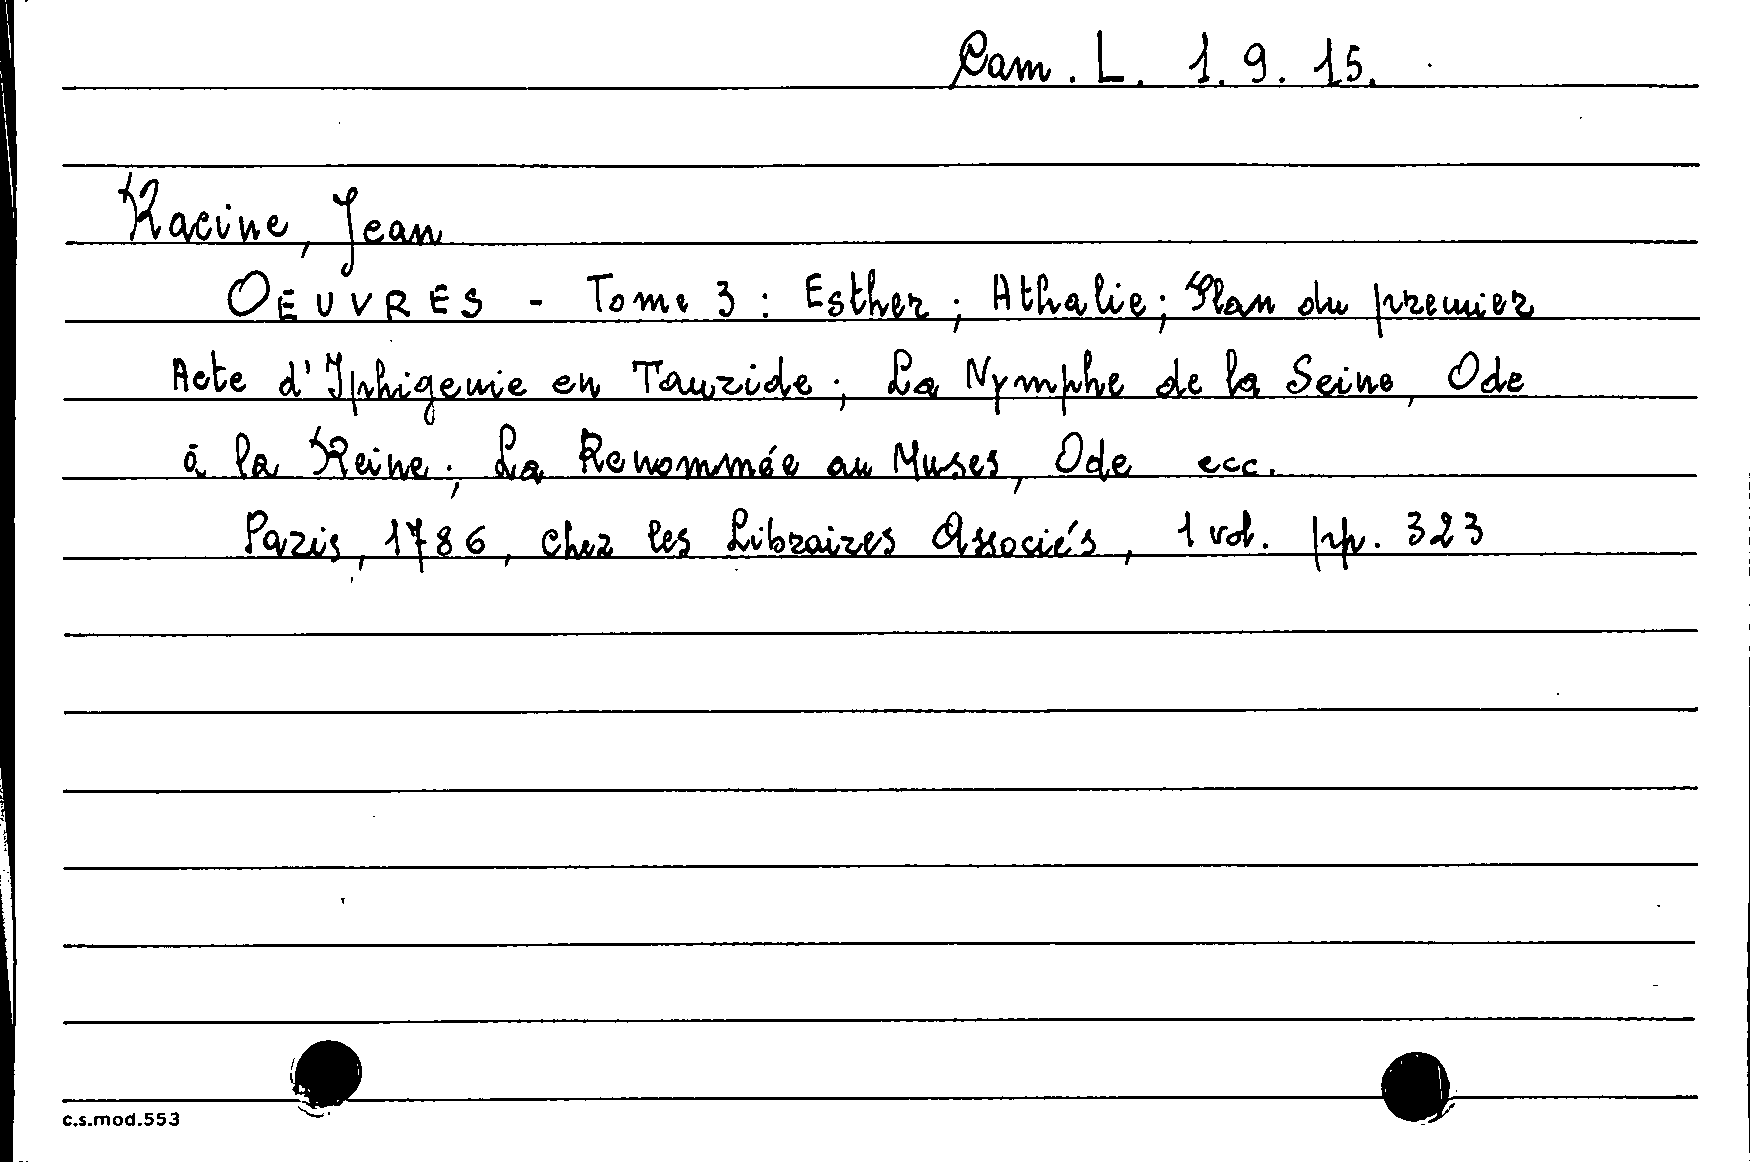 Cam. L. 1. 9. 15.
Racine, Jean
OEUVRES - Tome 3 : Esther ; Athalie ; Plan du premier
Acte d'Iphigenie en Tauride ; La Nymphe de la Seine, Ode
à la Reine ; La Renommée au Muses, Ode ecc.
Paris, 1786, chez les Libraires Associés, 1 vol. pp. 323
c.s.mod.553